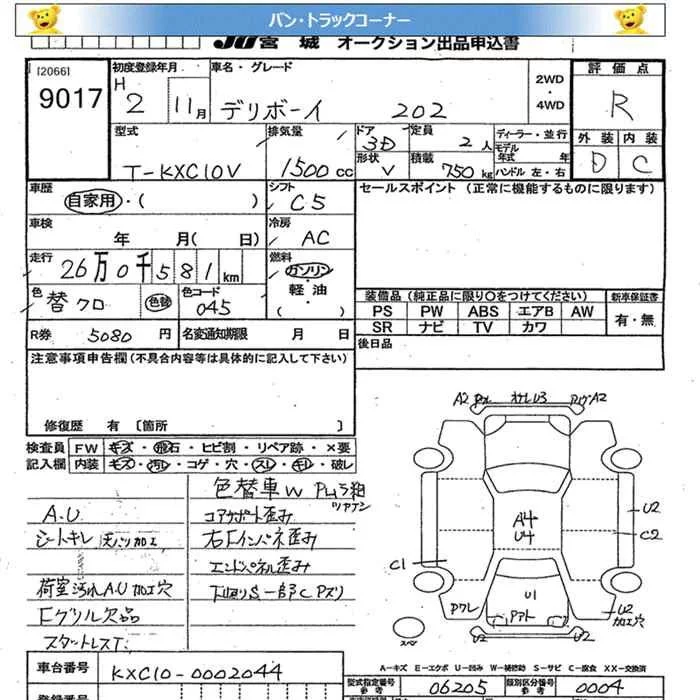 バン・トラックコーナー
JU 宮 城 オークション出品申込書
[2066]
9017
初度登録年月
H 2 11月
車名・グレード
デリボーイ 202
2WD
・
4WD
評価点
R
型式
T-KXC10V
排気量
1500cc
ドア
3D
定員
2人
形状
V
積載
750kg
ディーラー・並行
モデル
年式 年
ハンドル 左・右
外装
D
内装
C
車歴
自家用・( )
シフト
C5
セールスポイント(正常に機能するものに限ります)
車検
年 月( 日)
冷房
AC
走行
26万0千581km
燃料
ガソリン
軽・油
・( )
色
替クロ
色替
色コード
045
装備品(純正品に限り○をつけてください)
新車保証書
PS PW ABS エアB AW
SR ナビ TV カワ
有・無
R券 5080円
名変通知期限 月 日
後日品
注意事項申告欄(不具合内容等は具体的に記入して下さい)
修復歴 有〔箇所 〕
検査員
記入欄
FW キズ・飛石・ヒビ割・リペア跡・×要
内装 キズ・汚レ・コゲ・穴・スレ・キレ・破レ
A.U
シートキレ 天バリ加工
荷室汚れA.U加工穴
Fグリル欠品
スタットレスT.
色替車W
コアサポート歪み
右Fインパネ歪み
エンドパネル歪み
下廻りS 一部Cアズリ
A2
U3
A2
A4
U4
U2
C2
C1
U1
U2
加工穴
U2
U2
スペア
車台番号
KXC10-0002044
A－キズ E－エクボ U－凹み W－補修跡 S－サビ C－腐食 XX－交換済
型式指定番号
参考
06205
類別区分番号
参考
0004
登録番号